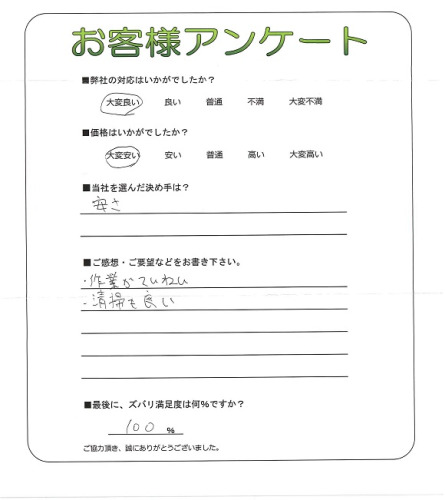 お客様アンケート
■弊社の対応はいかがでしたか?
大変良い 良い 普通 不満 大変不満
■価格はいかがでしたか?
大変安い 安い 普通 高い 大変高い
■当社を選んだ決め手は?
安さ
■ご感想・ご要望などをお書き下さい。
・作業がていねい
・清掃も良い
■最後に、ズバリ満足度は何%ですか?
100 %
ご協力頂き、誠にありがとうございました。